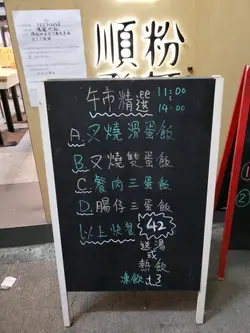 順粉
午市精選 11:00
~
14:00
A. 叉燒滑蛋飯
B. 叉燒雙蛋飯
C. 餐肉三蛋飯
D. 腸仔三蛋飯
以上快餐 42
送湯
或
熱飲
凍飲+3